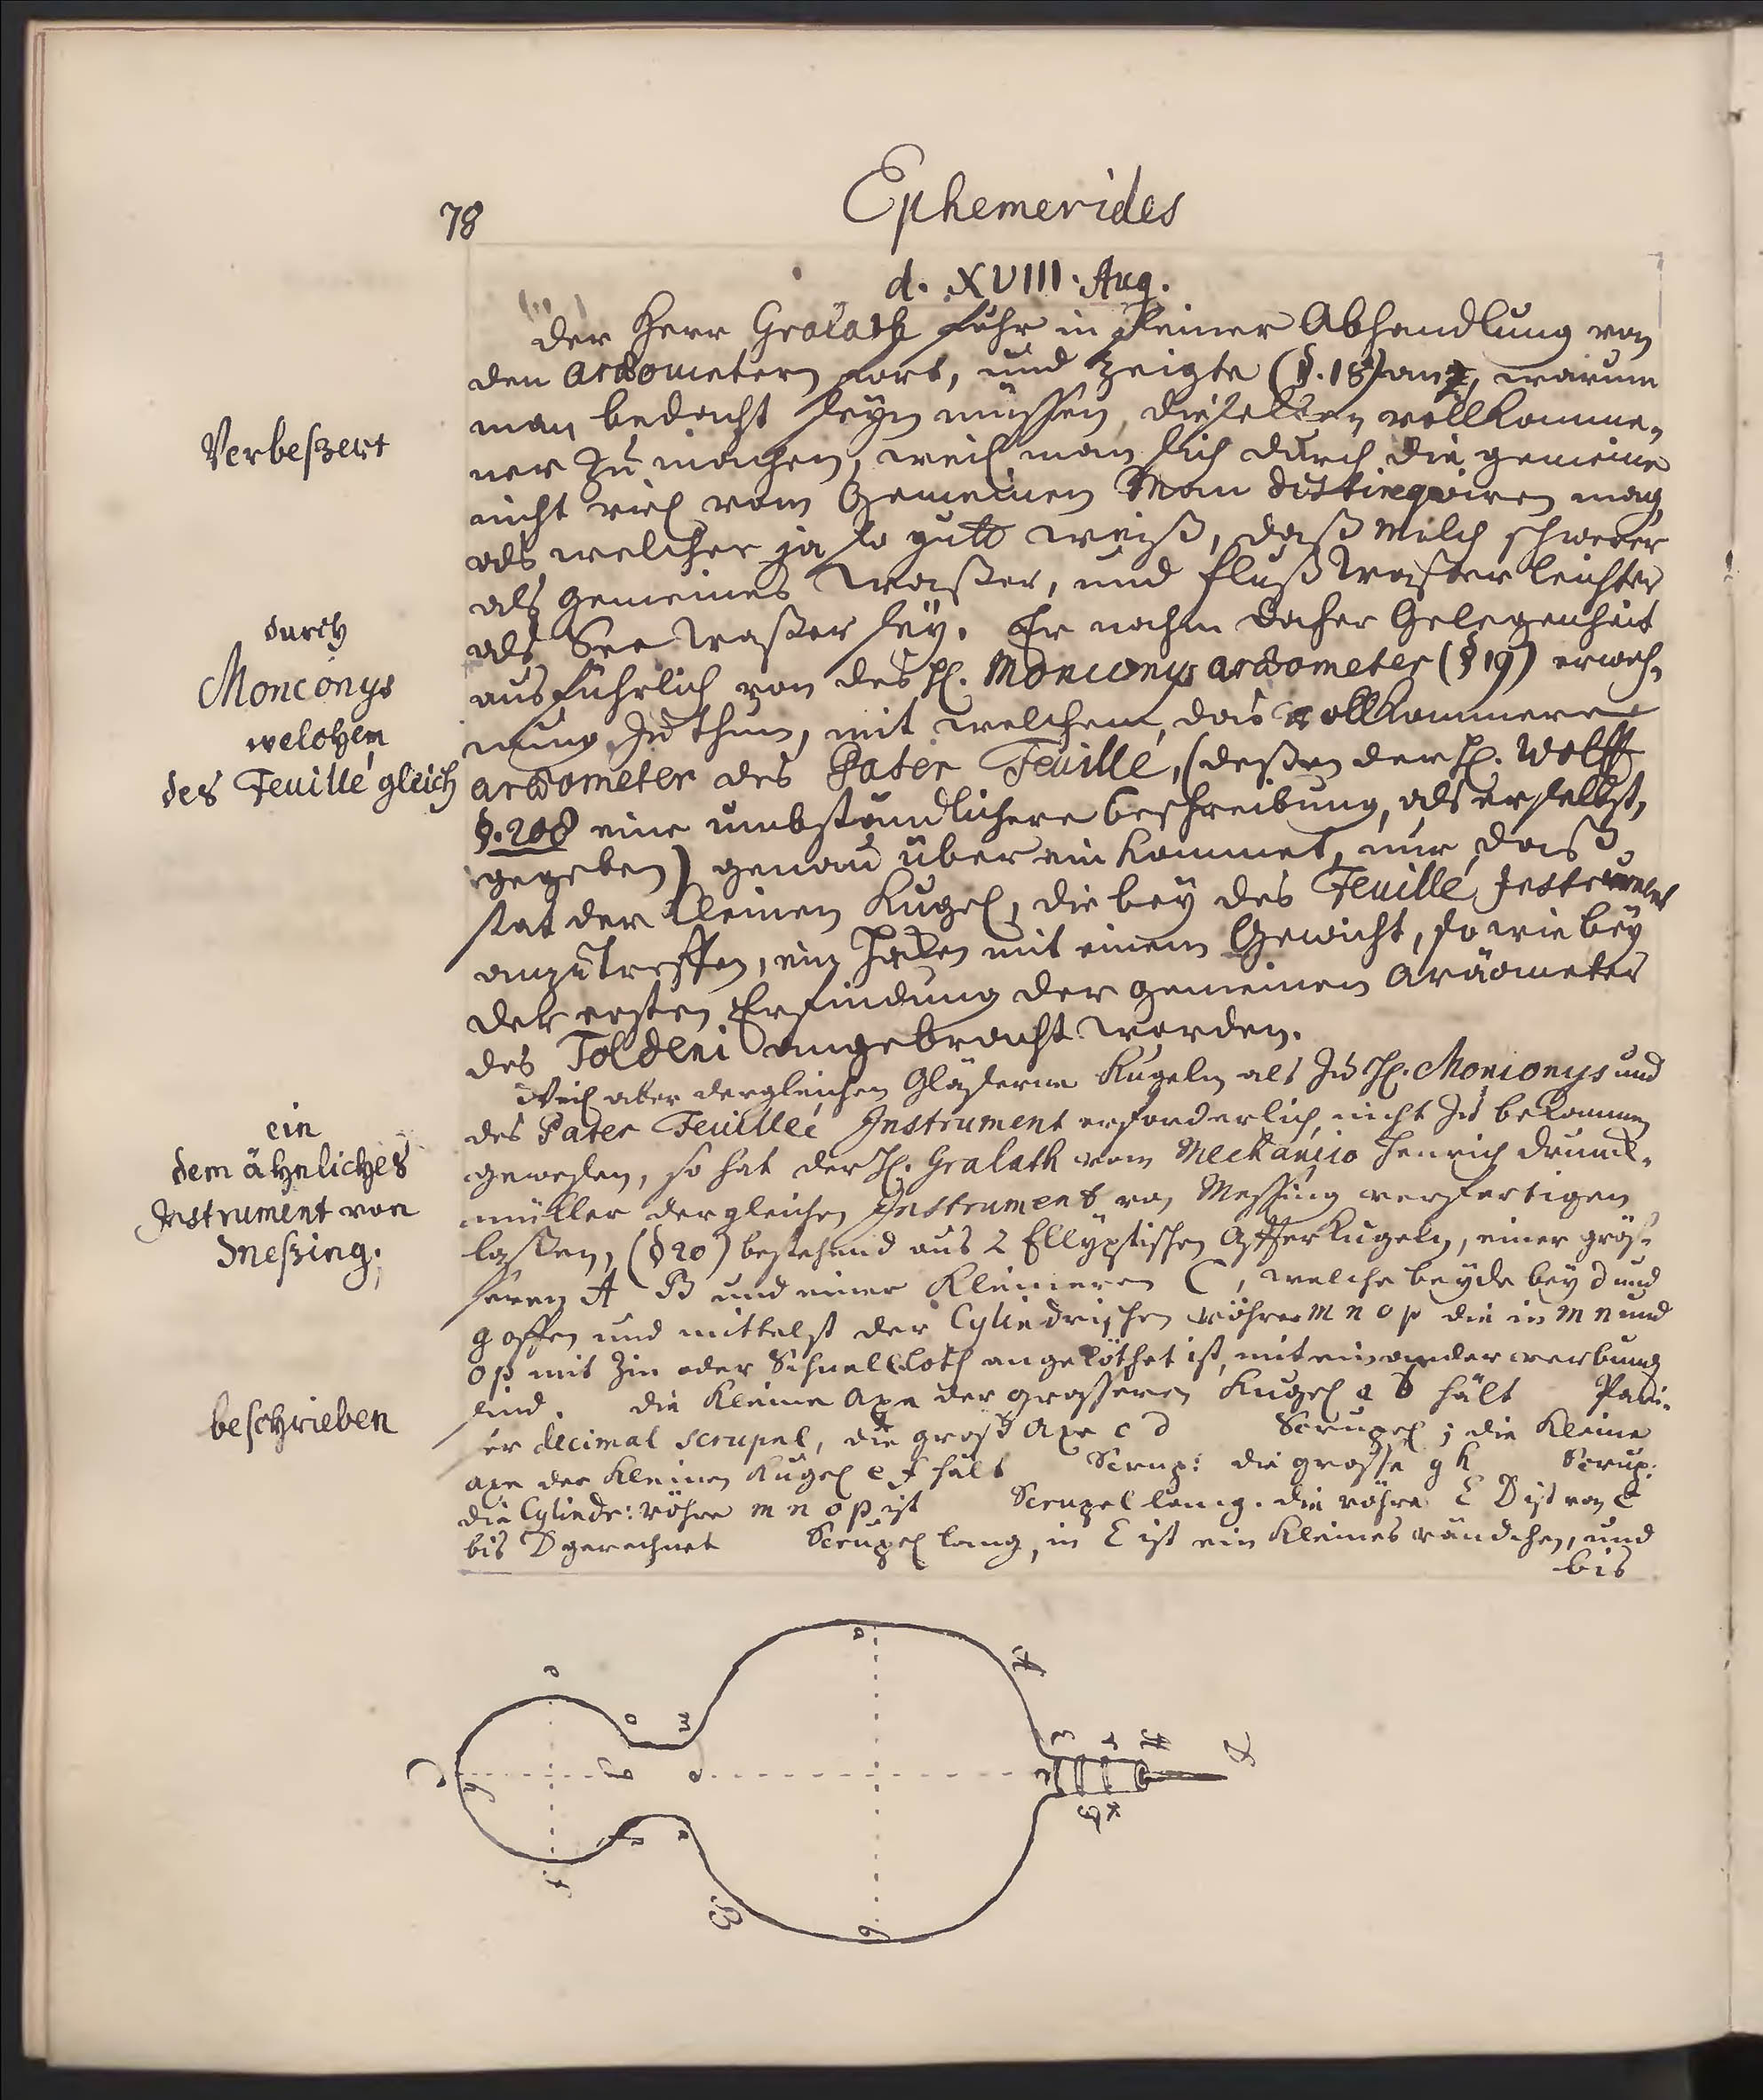 78
Ephemerides
d. XVIII. Aug.
Der Herr Gralath fuhr in seiner Abhandlung von
den Aräometern fort, und zeigte (§. 18) an, warum
man bedacht seyn müssen, dieselben vollkomme-
ner zu machen, weil man sich durch die gemeine
nicht viel vom Gemeinen Man distinqviren mag,
als welcher ja so gutt weiß, daß Milch schwerer
als gemeines Waßer, und flußwaßer leichter
als See Waßer sey. Er nahm daher Gelegenheit
ausführlich von des H. Monconys aräometer (§ 19) erweh-
nung zu thun, mit welchem, das vollkommere
aräometer des Pater Feuillé, (deßen der H. Wolff
§. 208 eine umbständlichere beschreibung, als er selbst,
gegeben) genau über ein kommet, nur daß
stat der kleinen Kugel, die bey des Feuillé Instrument
anzutreffen, ein Haken mit einem Gewicht, so wie bey
der ersten Erfindung der gemeinen Aräometer
des Toldeni angebracht worden.
Weil aber dergleichen Gläserne Kugeln als zu H. Monconys und
des Pater Feuilleé Instrument erforderlich, nicht zu bekommen
gewesen, so hat der H. Gralath vom Mechanico Henrich Drund-
müller dergleichen Instrument von Messing verfertigen
laßen, (§ 20) bestehend aus 2 Ellyptischen Affterkugeln, einer größ-
seren A B und einer Kleineren C, welche beyde bey d und
g offen und mittelst der Cylindrischen röhre m n o p die in m n und
o p mit Zin oder Schnellloth angelöthet ist, mit einander verbund
sind. die Kleine Axe der grosseren Kugel a b hält Pari-
er decimal scrupel, die groß Axe c d Scrupel; die Kleine
axe der Kleinen Kugel e f hält Scrup: die grosse g h Scrup:
die Cylindr: röhre m n o p ist Scrupel lang. die röhre E D ist von E
bis D gerechnet Scrupel lang, in E ist ein Kleines rändchen, und
bis
Verbeßert
durch
Monconys
welchem
des Feuillé gleich
ein
dem ähnliches
Instrument von
Meßing.
beschrieben